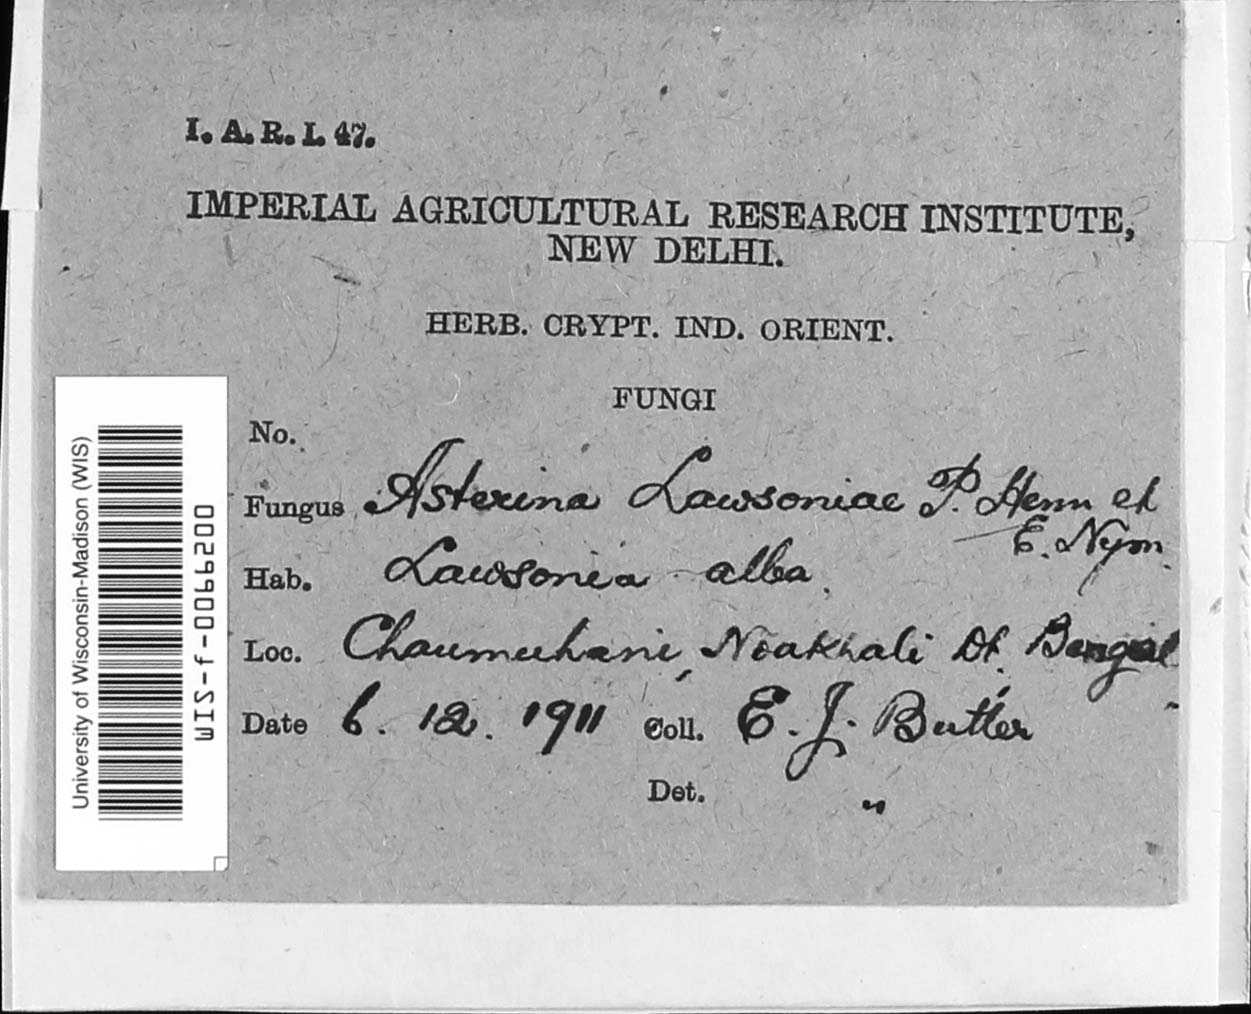 I. A. R. I. 47.
IMPERIAL AGRICULTURAL RESEARCH INSTITUTE,
NEW DELHI.
HERB. CRYPT. IND. ORIENT.
FUNGI
No.
Fungus Asterina Lawsoniae P. Henn et
E. Nym.
Hab. Lawsonia alba.
Loc. Chaumuhani, Noakhali Dt. Bengal
Date 6. 12. 1911 Coll. E. J. Butler
Det. "
University of Wisconsin-Madison (WIS)
WIS-f-0066200